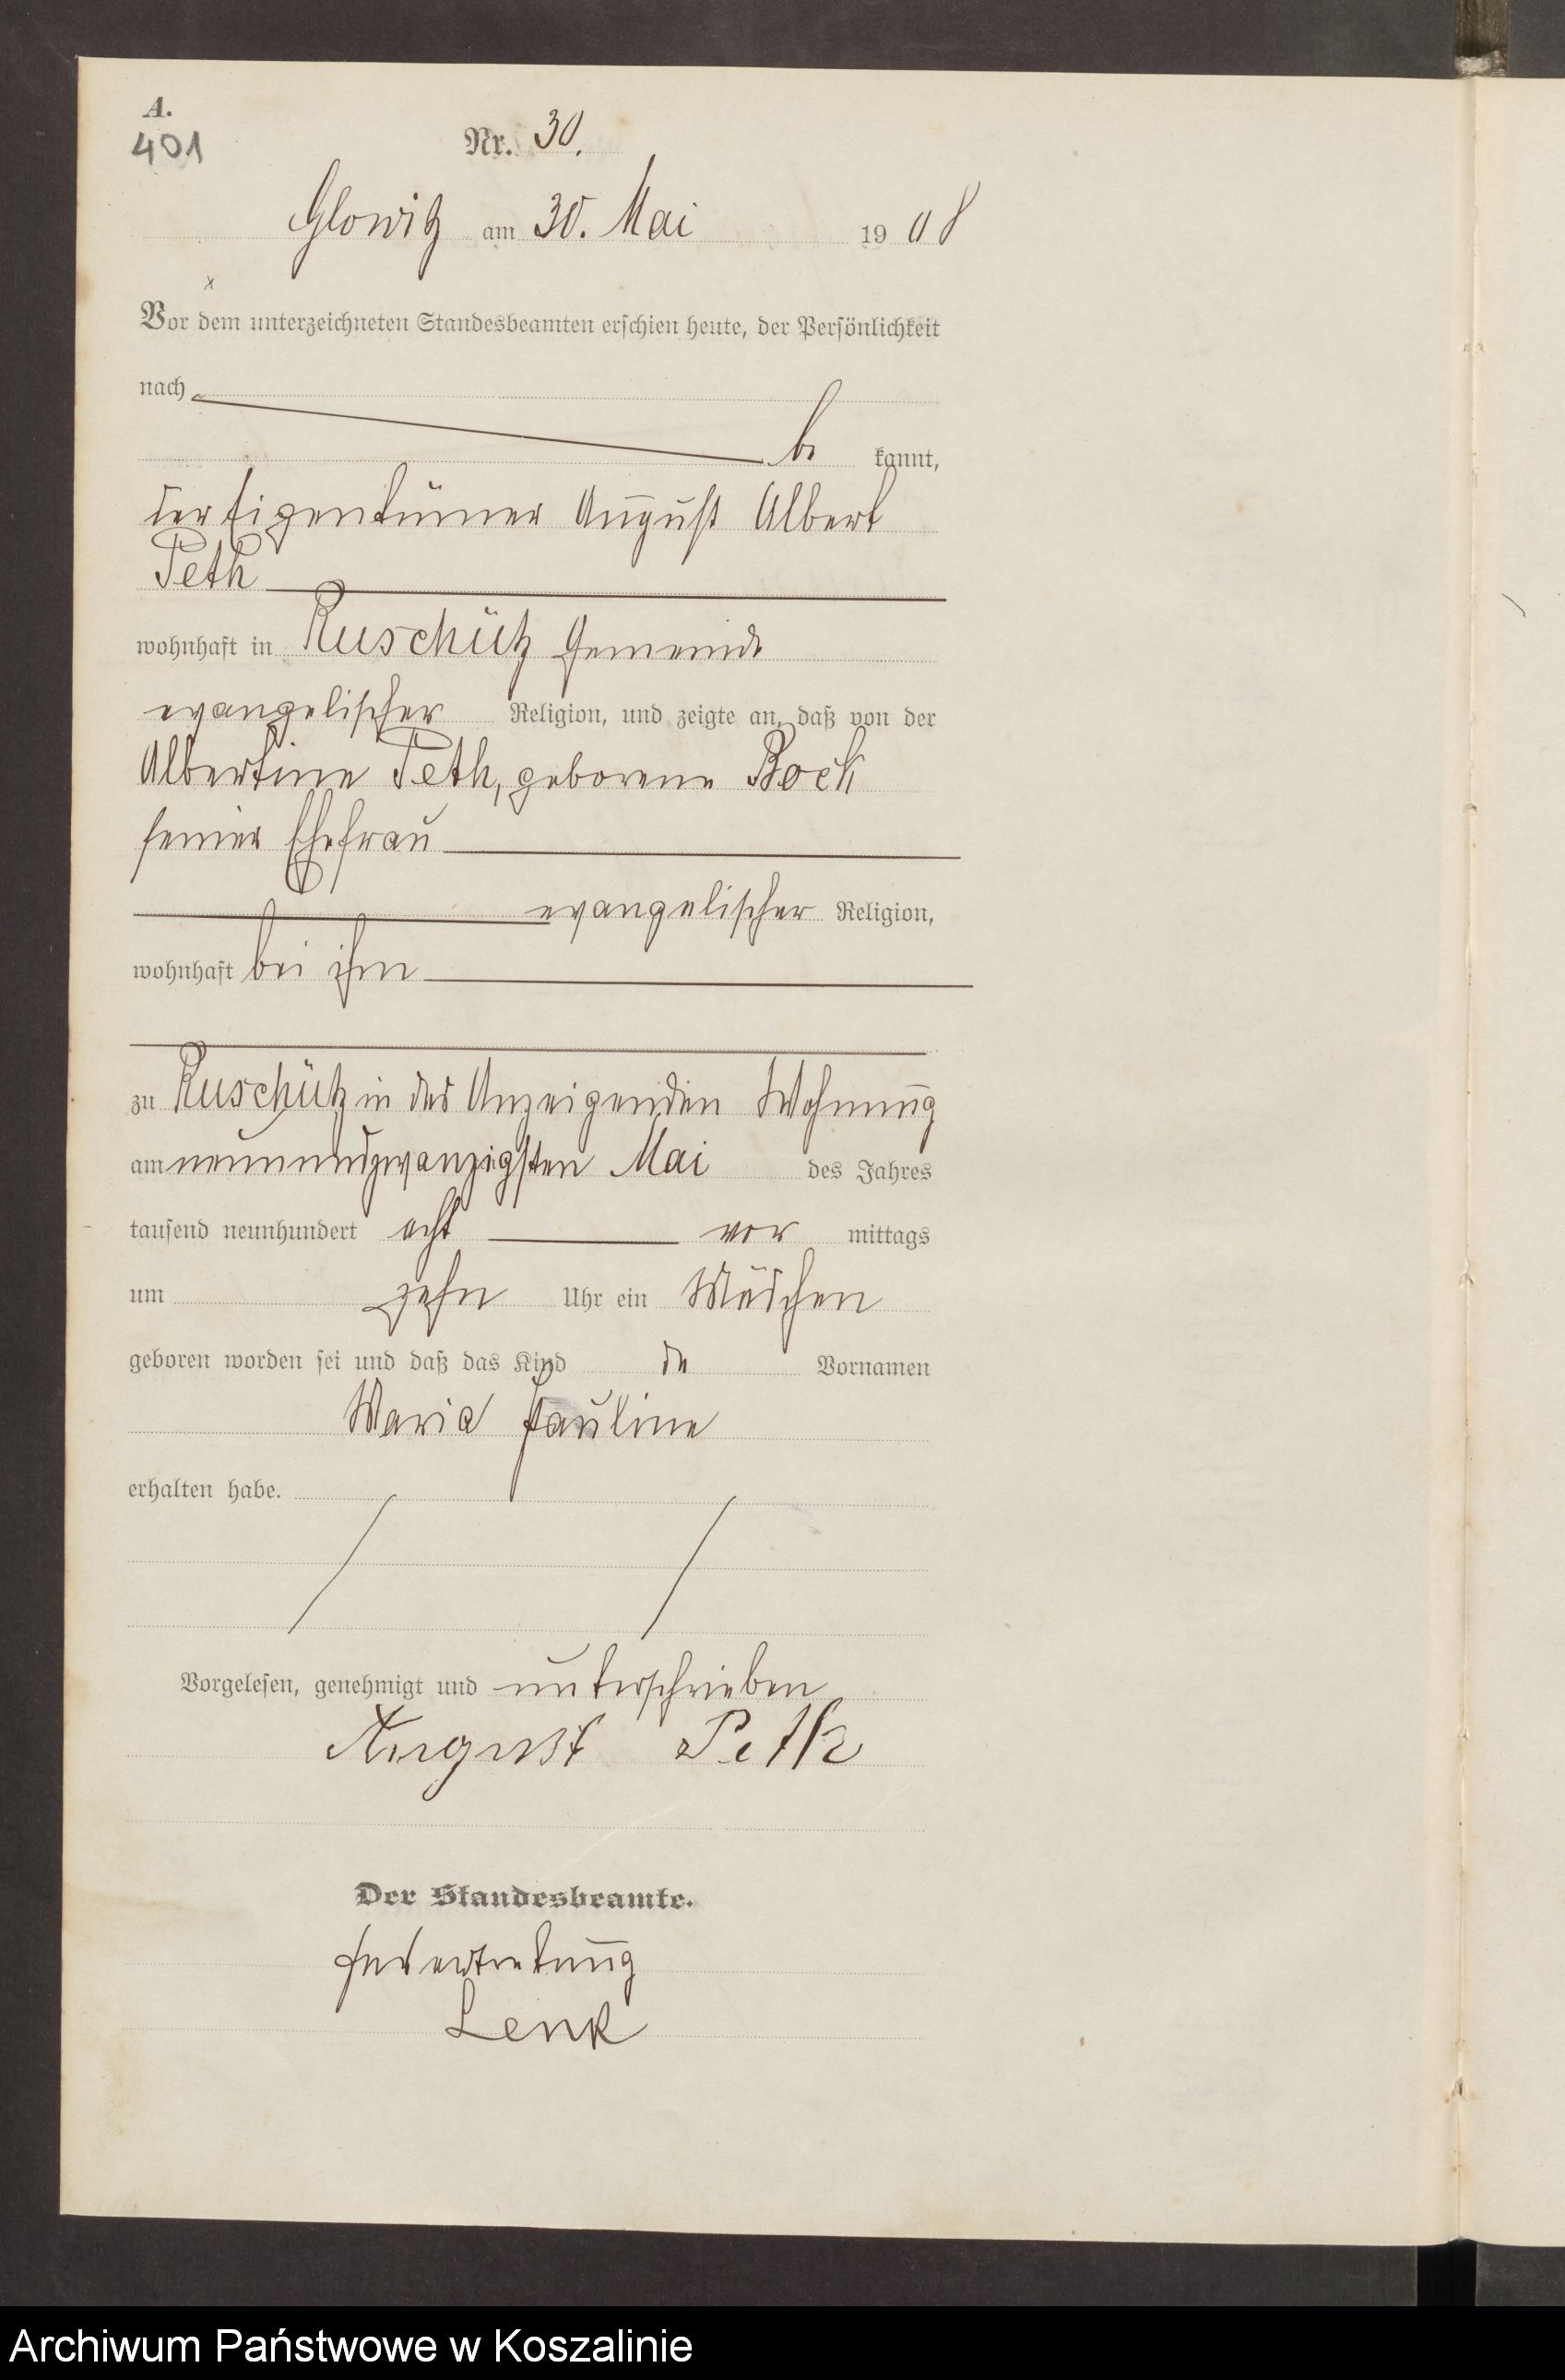 A.
401
Nr. 30.
Glowitz am 30. Mai 1908
Vor dem unterzeichneten Standesbeamten erschien heute, der Persönlichkeit
nach
be kannt,
der Eigentümer August Albert
Peth
wohnhaft in Ruschütz Gemeinde
evangelischer Religion, und zeigte an, daß von der
Albertine Peth, geborene Bock
seiner Ehefrau
evangelischer Religion,
wohnhaft bei ihm
zu Ruschütz in des Anzeigenden Wohnung
am neunundzwanzigsten Mai des Jahres
tausend neunhundert acht vor mittags
um zehn Uhr ein Mädchen
geboren worden sei und daß das Kind die Vornamen
Maria Pauline
erhalten habe.
Vorgelesen, genehmigt und unterschrieben
August Peth
Der Standesbeamte.
In Vertretung
Lenk
Archiwum Państwowe w Koszalinie